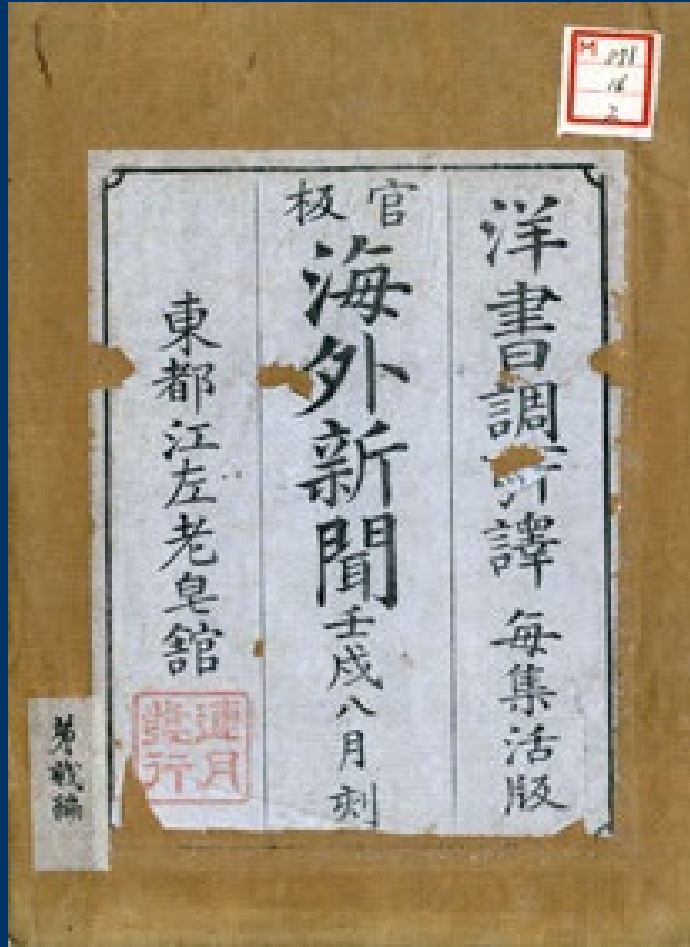 洋書調所譯 每集活版
官板
海外新聞 壬戌八月刻
東都江左老皂館
連月
發行